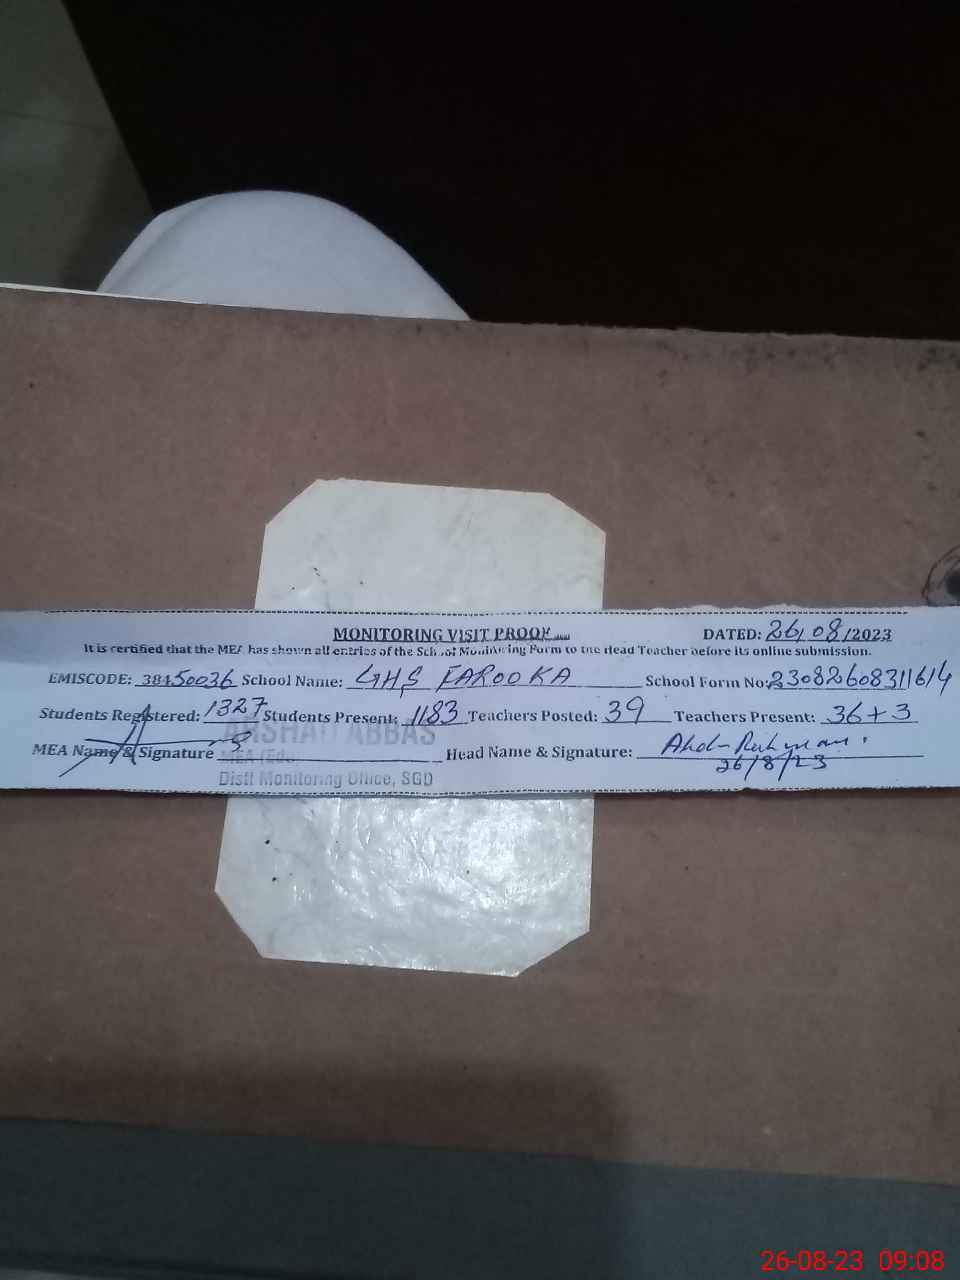 MONITORING VISIT PROOF
DATED: 26/08/2023
It is certified that the MEA has shown all entries of the School Monitoring Form to the Head Teacher before its online submission.
EMISCODE: 38450036 School Name: GHS FAROOKA School Form No: 23082608311614
Students Registered: 1327 Students Present: 1183 Teachers Posted: 39 Teachers Present: 36+3
ARSHAD ABBAS
MEA Name & Signature Head Name & Signature: Abdur Rehman
MEA (Edu) 26/8/23
Distt Monitoring Office, SGD
26-08-23 09:08